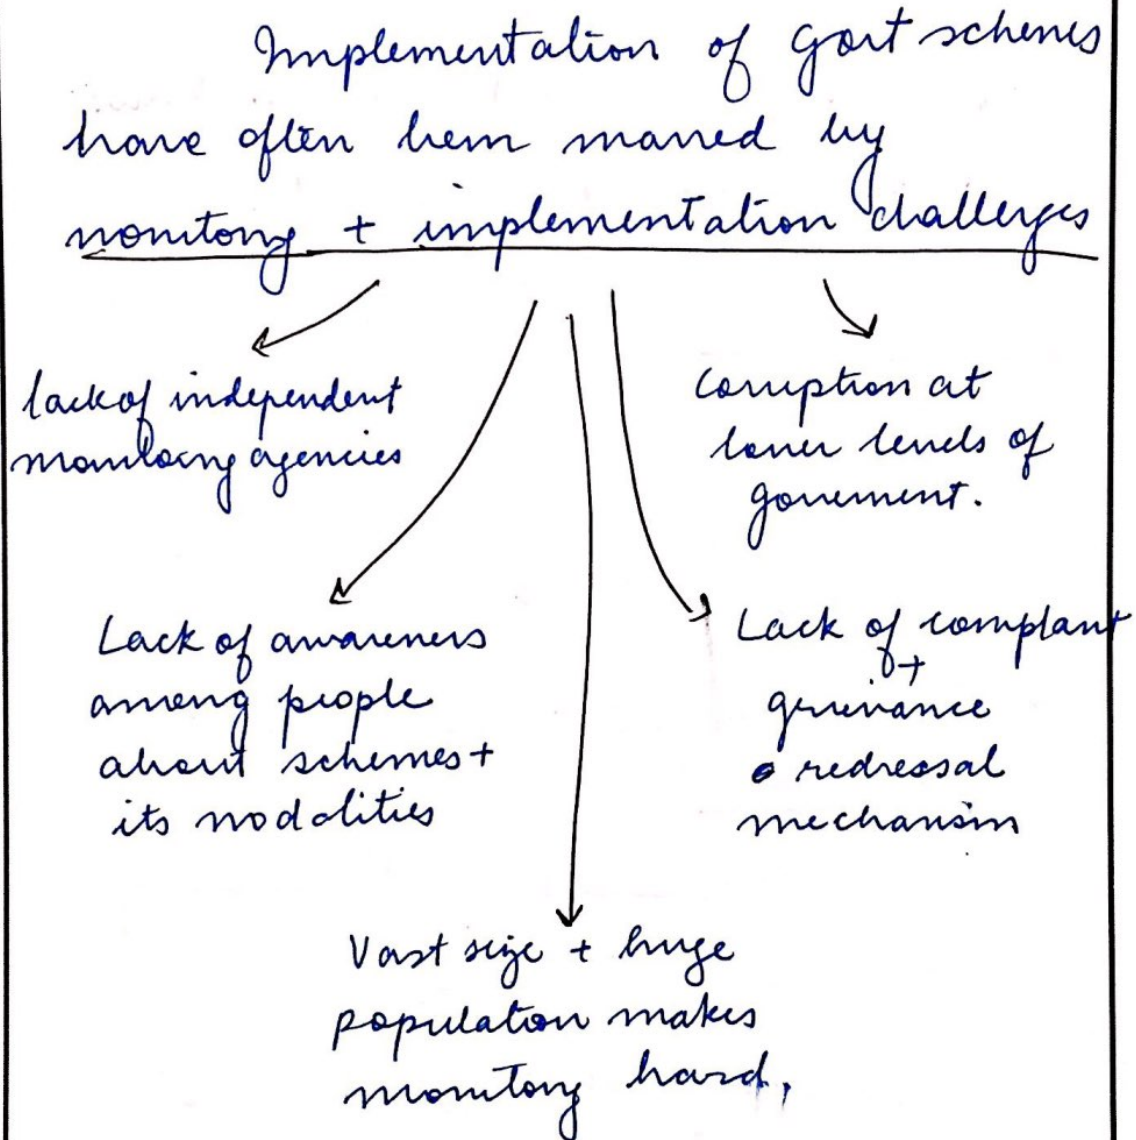 Implementation of Govt schemes
have often been marred by
monitorng + implementation challenges
lack of independent
monitorng agencies
Corruption at
lower levels of
government.
Lack of awareness
among people
about schemes +
its modalities
Lack of complant
+
grievance
redressal
mechanism
Vast size + huge
population makes
monitorng hard,